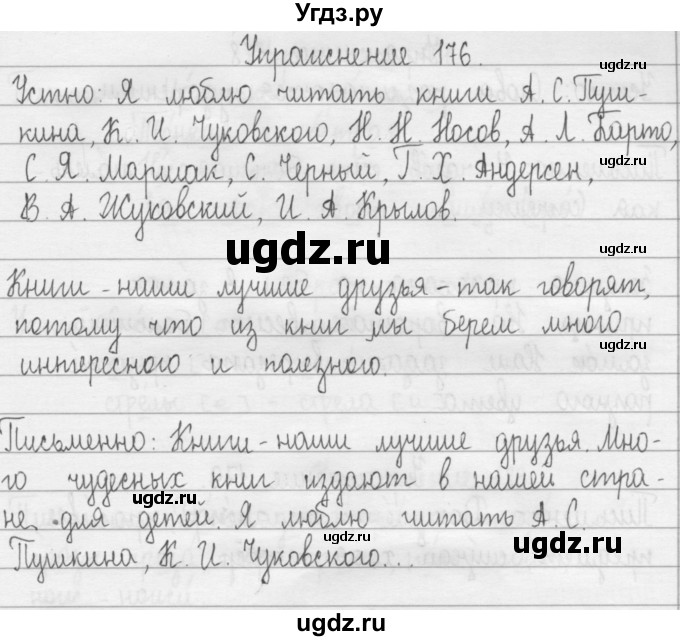 Угдз.ру
Упражнение 176.
Устно: Я люблю читать книги А. С. Пуш-
кина, К. И. Чуковского, Н. Н. Носов, А. Л. Барто,
С. Я. Маршак, С. Черный, Г. Х. Андерсен,
В. А. Жуковский, И. А Крылов.
Книги - наши лучшие друзья - так говорят,
потому что из книг мы берем много
интересного и полезного.
Письменно: Книги - наши лучшие друзья. Мно-
го чудесных книг издают в нашей стра-
не для детей. Я люблю читать А. С.
Пушкина, К. И. Чуковского...
ugdz.ru
ugdz.ru
ugdz.ru
ugdz.ru
ugdz.ru
ugdz.ru
ugdz.ru
ugdz.ru
ugdz.ru
ugdz.ru